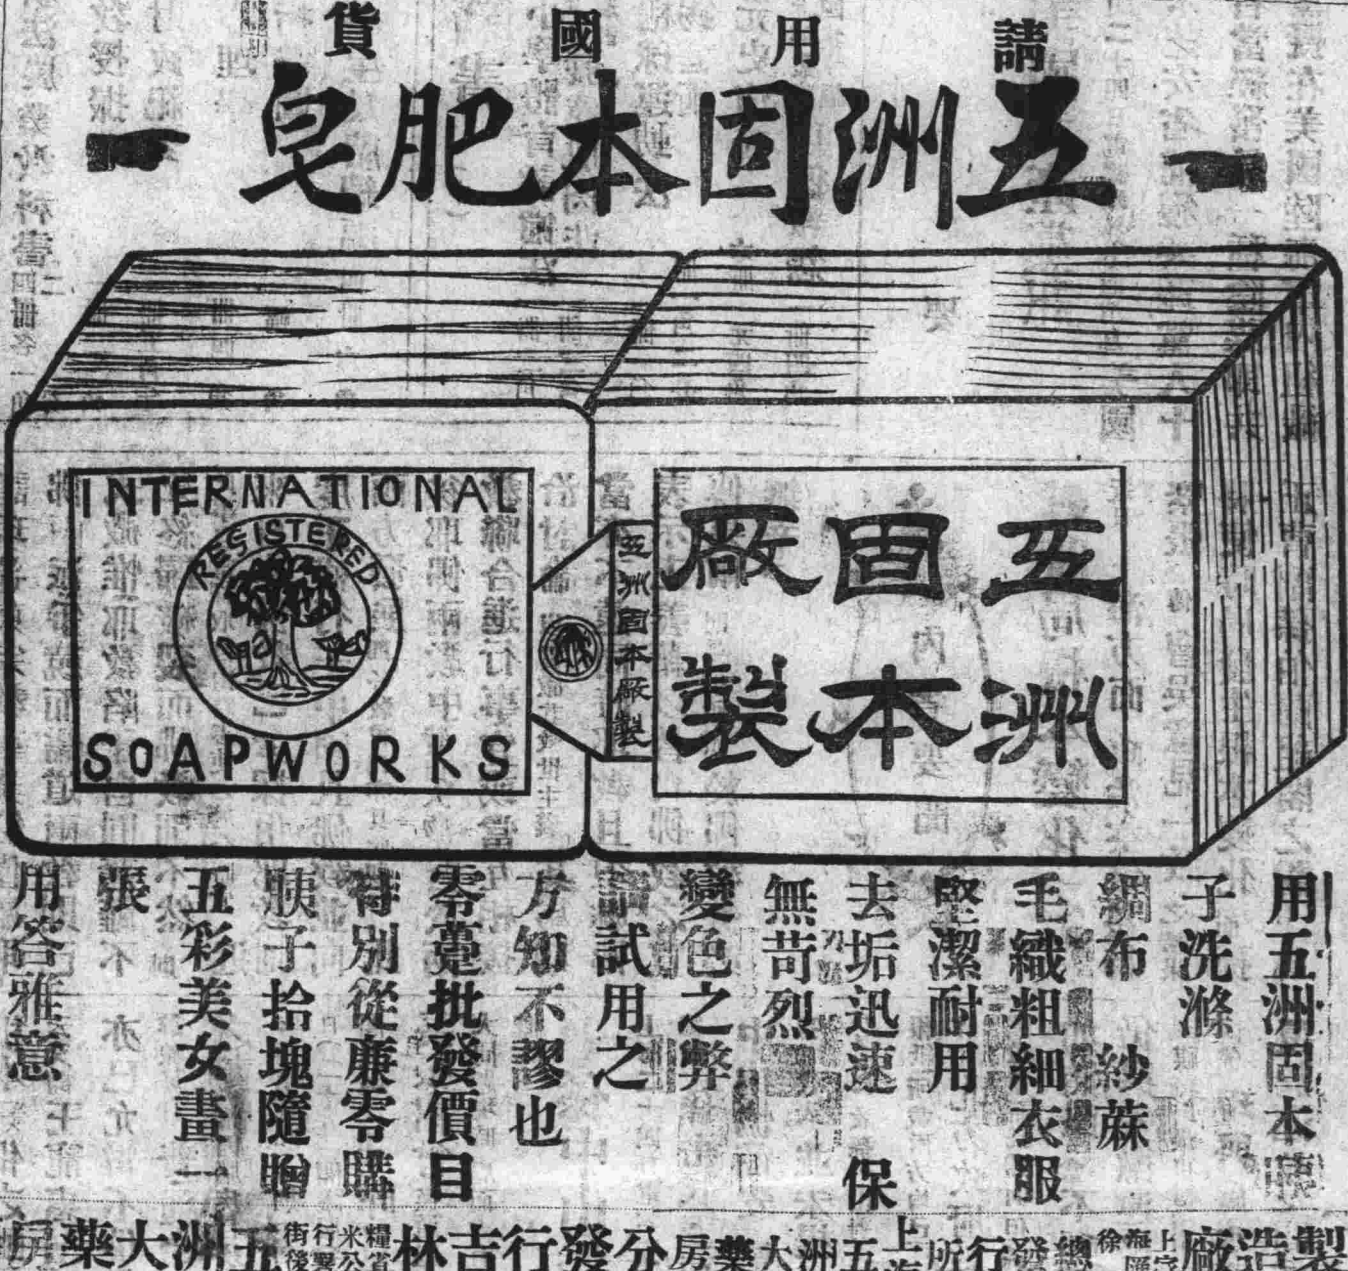 請用國貨
五洲固本肥皂
INTERNATIONAL
REGISTERED
SOAPWORKS
五洲固本廠製
五洲
固本
廠製
用五洲固本
子洗滌
綢布 紗蔴
毛織粗細衣服
堅潔耐用
去垢迅速 保
無苛烈
變色之弊
請試用之
方知不謬也
零躉批發價目
特別從廉零購
胰子拾塊隨贈
五彩美女畫一
張
用答雅意
製造廠
上海徐
總發行所
上海五洲大藥房
分發行吉林
糧米行街
五洲大藥房